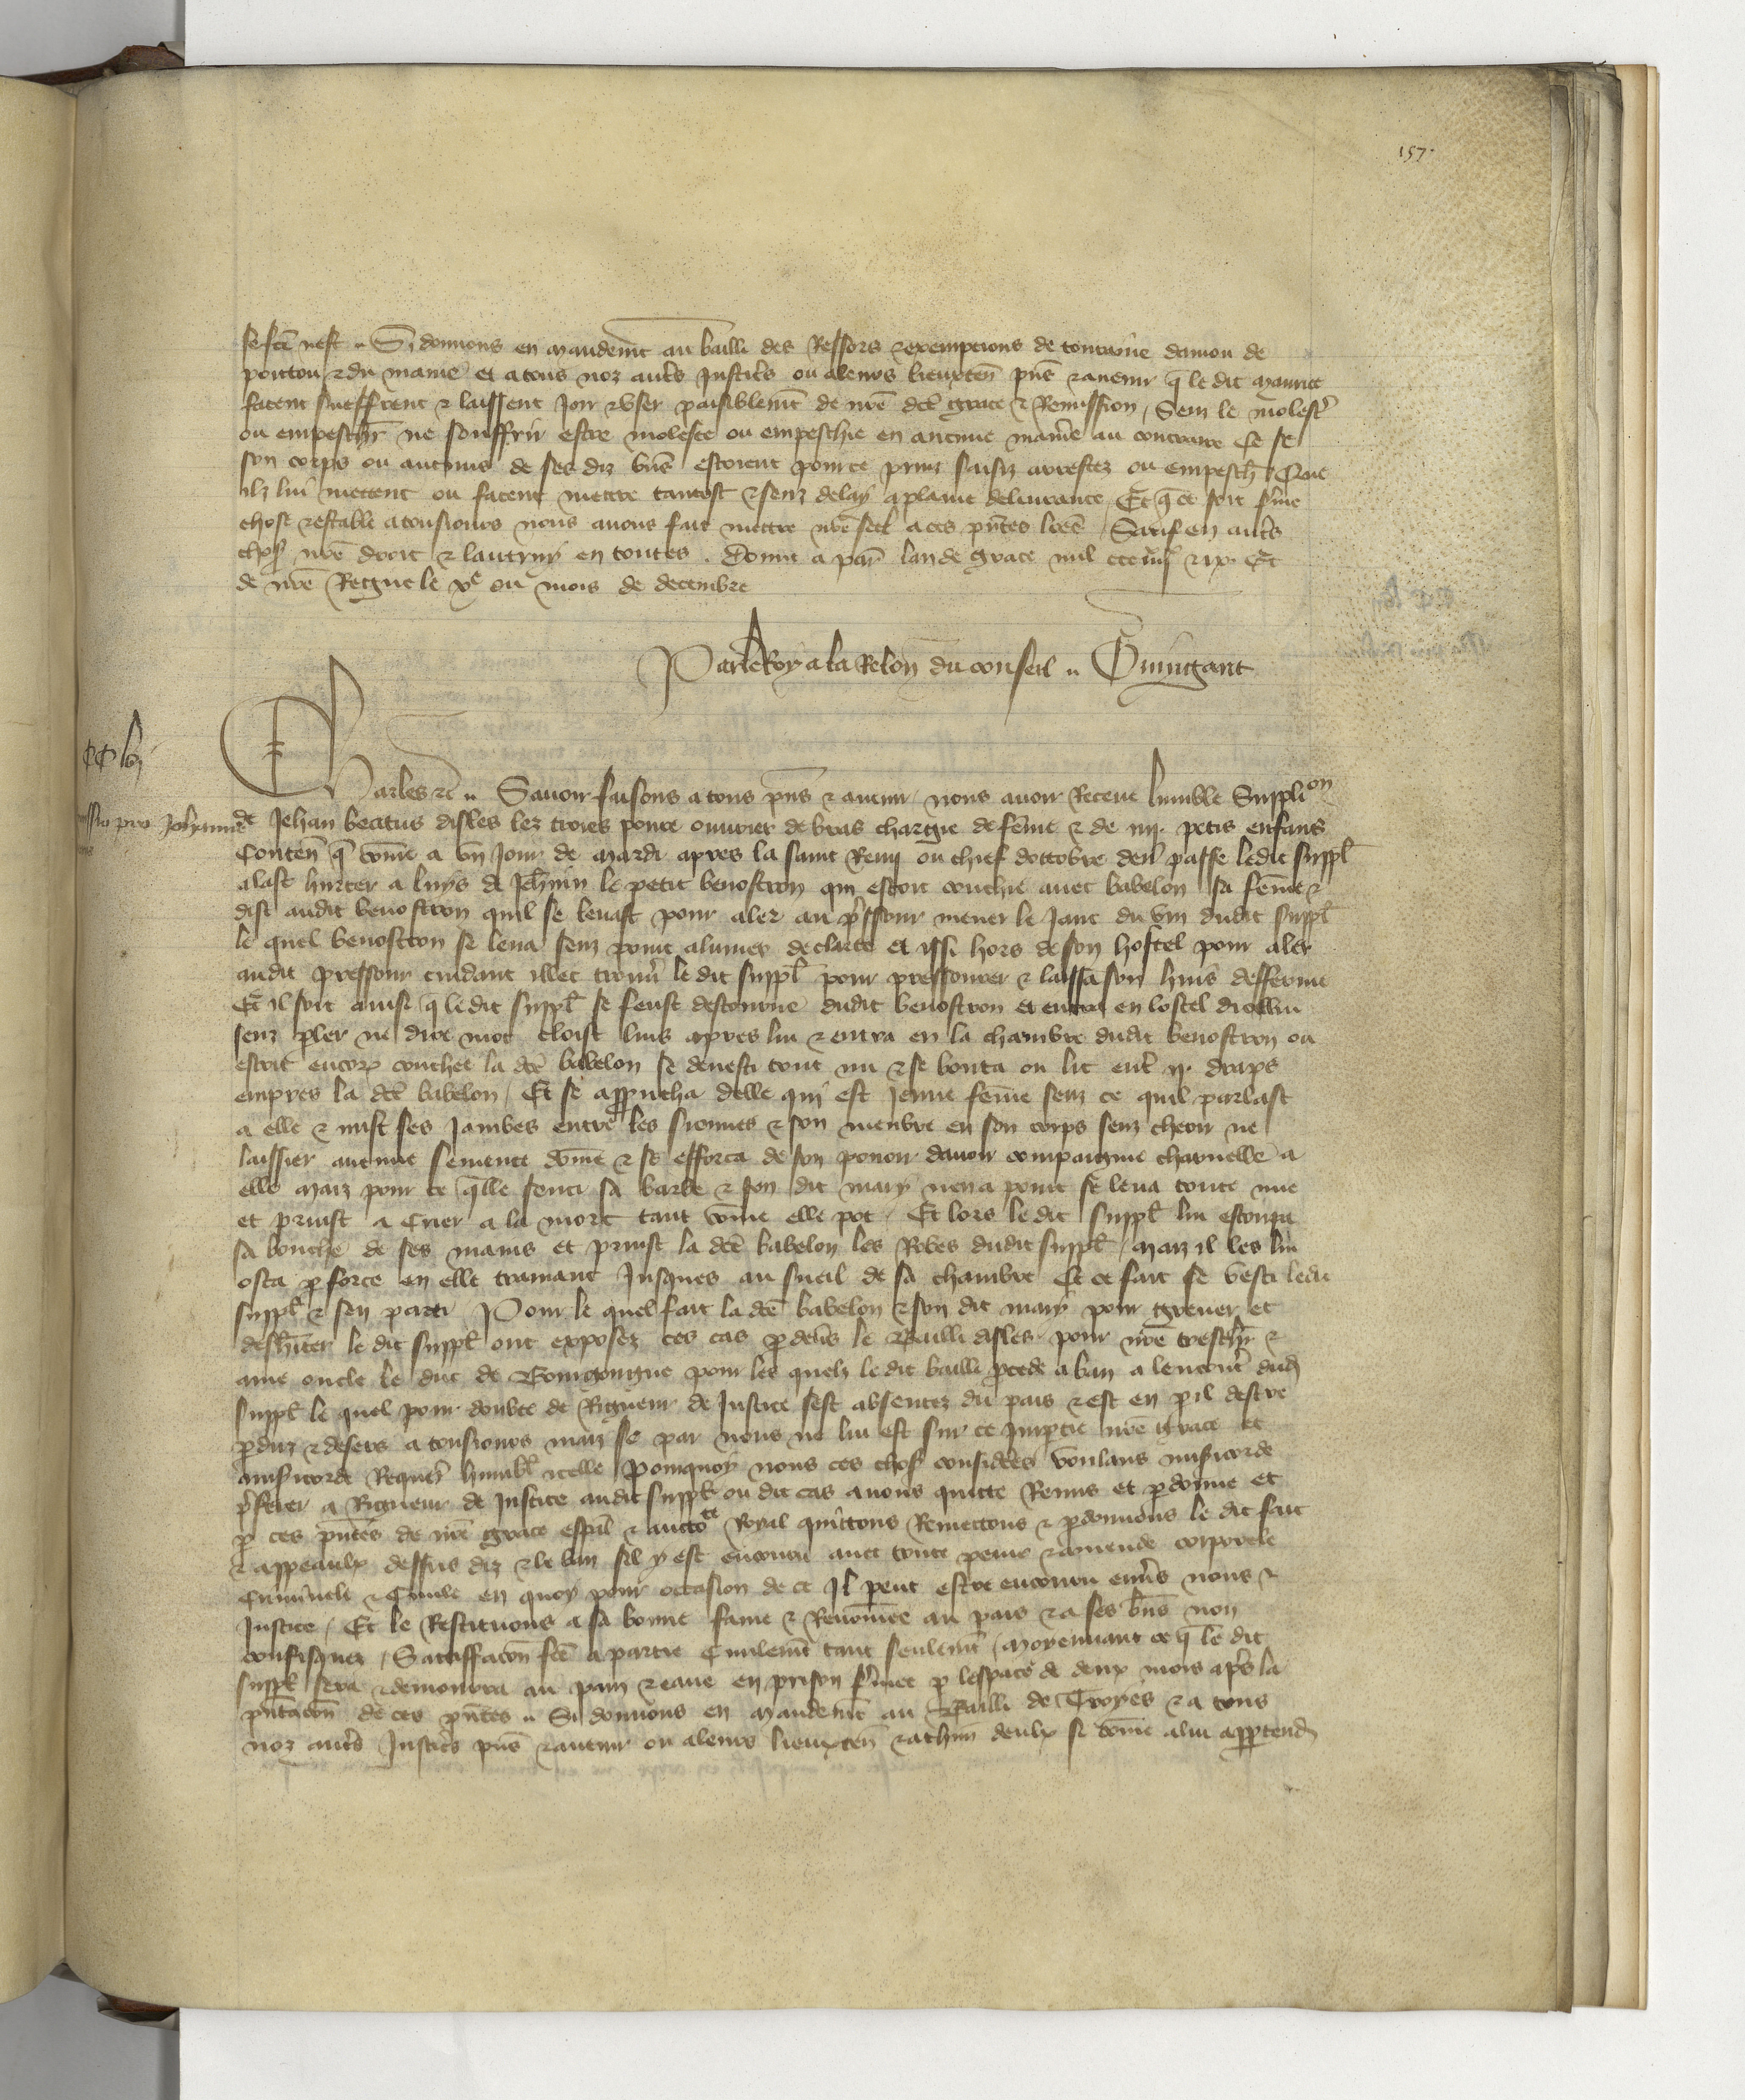 157.
se fcē nest. Si donnons en mandemt au bailli des Ressors & exempcions de touraine danjou de
poitou & du maine et a tous noz autrs justicrs ou a leurs lieuxten pns & avenir q le dit maurice
facent sueffrent & laissent joir & user paisiblemt de nrē dcē grace & Remission, Senz le molestr
ou empeschr ne souffrir estre moleste ou empeschie en aucune manie au contraire Et se
son corps ou aucuns de ses diz bns estoient pour ce prins saisiz arrestez ou empesch Que
ilz lui mettent ou facent mettre tantost & senz delay a plaine delivrance Et q ce soit ferme
chose & estable a tousiours nous avons fait mettre nrē seel a ces pntes lrēs, Sauf en autrs
choses nrē droit & lautruy en toutes. Donne a par lan de grace mil ccc iiijxx & ix. Et
de nrē Regne le xe ou mois de decembre
Par le Roy a la Relon du conseil. Guingant
CC lvj
Charles &c. Savoir faisons a tous pns & avenir nous avoir Receue lumble Supplion
Remissio pro Johanne
de Jehan becitus disles lez troies povre ouvrier de bras chargie de feme & de iiij. petis enfans
Conten q come a un jour de mardi apres la saint Remy ou chief doctobre den passe ledit suppl
alast hurter a luys de Jehnin le petit benostron qui estoit couchie avec babelon sa feme &
dist audit benostron quil se levast pour aler au pressour mener le janc du vin dudit suppl
le quel benostron se leva senz point alumer de clarte et issi hors de son hostel pour aler
audit pressour cuidant illec trouvr le dit suppl pour pressourer & laissa son huis defferme
Et il soit ainsi q le dit suppl se feust destourne dudit benostron et entra en lostel dicellui
senz pler ne dire mot cloist luis apres lui & entra en la chambre dudit benostron ou
estoit encor couchee la dcē babelon se devesti tout nu & se bouta ou lit entr ij. draps
empres la dcē babelon, Et se approucha delle qui est jeune feme senz ce quil parlast
a elle & mist ses jambes entre les siennes & son menbre en son corps senz cheoir ne
laissier aucune semence dome & se efforca de son povoir davoir compaignie charnelle a
elle maiz pour ce qlle senti sa barbe & son dit mary nen a point se leva toute nue
et prinst a Crier a la mort tant come elle pot, Et lors le dit suppl lui estoupa
sa bouche de ses mains et prinst la dcē babelon les Robes dudit suppl, maiz il les lui
osta p force en elle trainant Jusques au sueil de sa chambre Et ce fait se vesti ledit
suppl & sen parti Pour le quel fait la dcē babelon & son dit mary pour grever et
desheriter le dit suppl ont exposez ces cas p devs le Bailli disles pour nrē treschr &
ame oncle le duc de Bourgoingne pour les quelz le dit bailli pcede a ban a lencontr dud
suppl le quel pour doubte de Rigueur de Justice sest absentez du pais & est en pil destre
pduz & desers a tousiours maiz se par nous ne lui est sur ce Impartie nrē grace et
misericorde Requer humbl icelle Pourquoy nous ces choses considerēs voulans misericorde
pferer a Rigueur de Justice audit suppl ou dit cas avons quitte Remis et pdonne et
p ces pntes de nrē grace espal & auctote Royal quittons Remettons & pdonnons le dit fait
& appeaulx dessus diz & le ban sil y est encouru avec toute peine & amende corporele
Criminele & Civile en quoy pour occasion de ce Il peut estre encouru envrs nous &
Justice, Et le Restituons a sa bonne fame & Renomee au pais & a ses bns non
confisquez, Satisffacon fcē a partie Civilemt tant seulemt, Moyennant ce q le dit
suppl sera & demourra au pain & eaue en prison fermee p lespace de deux mois aprs la
pntacon de ces pntes. Si donnons en mandemt au Bailli de Troyes & a tous
noz autrs Justicrs pns & avenir ou a leurs lieuxten & a chun deulx si come a lui appartend